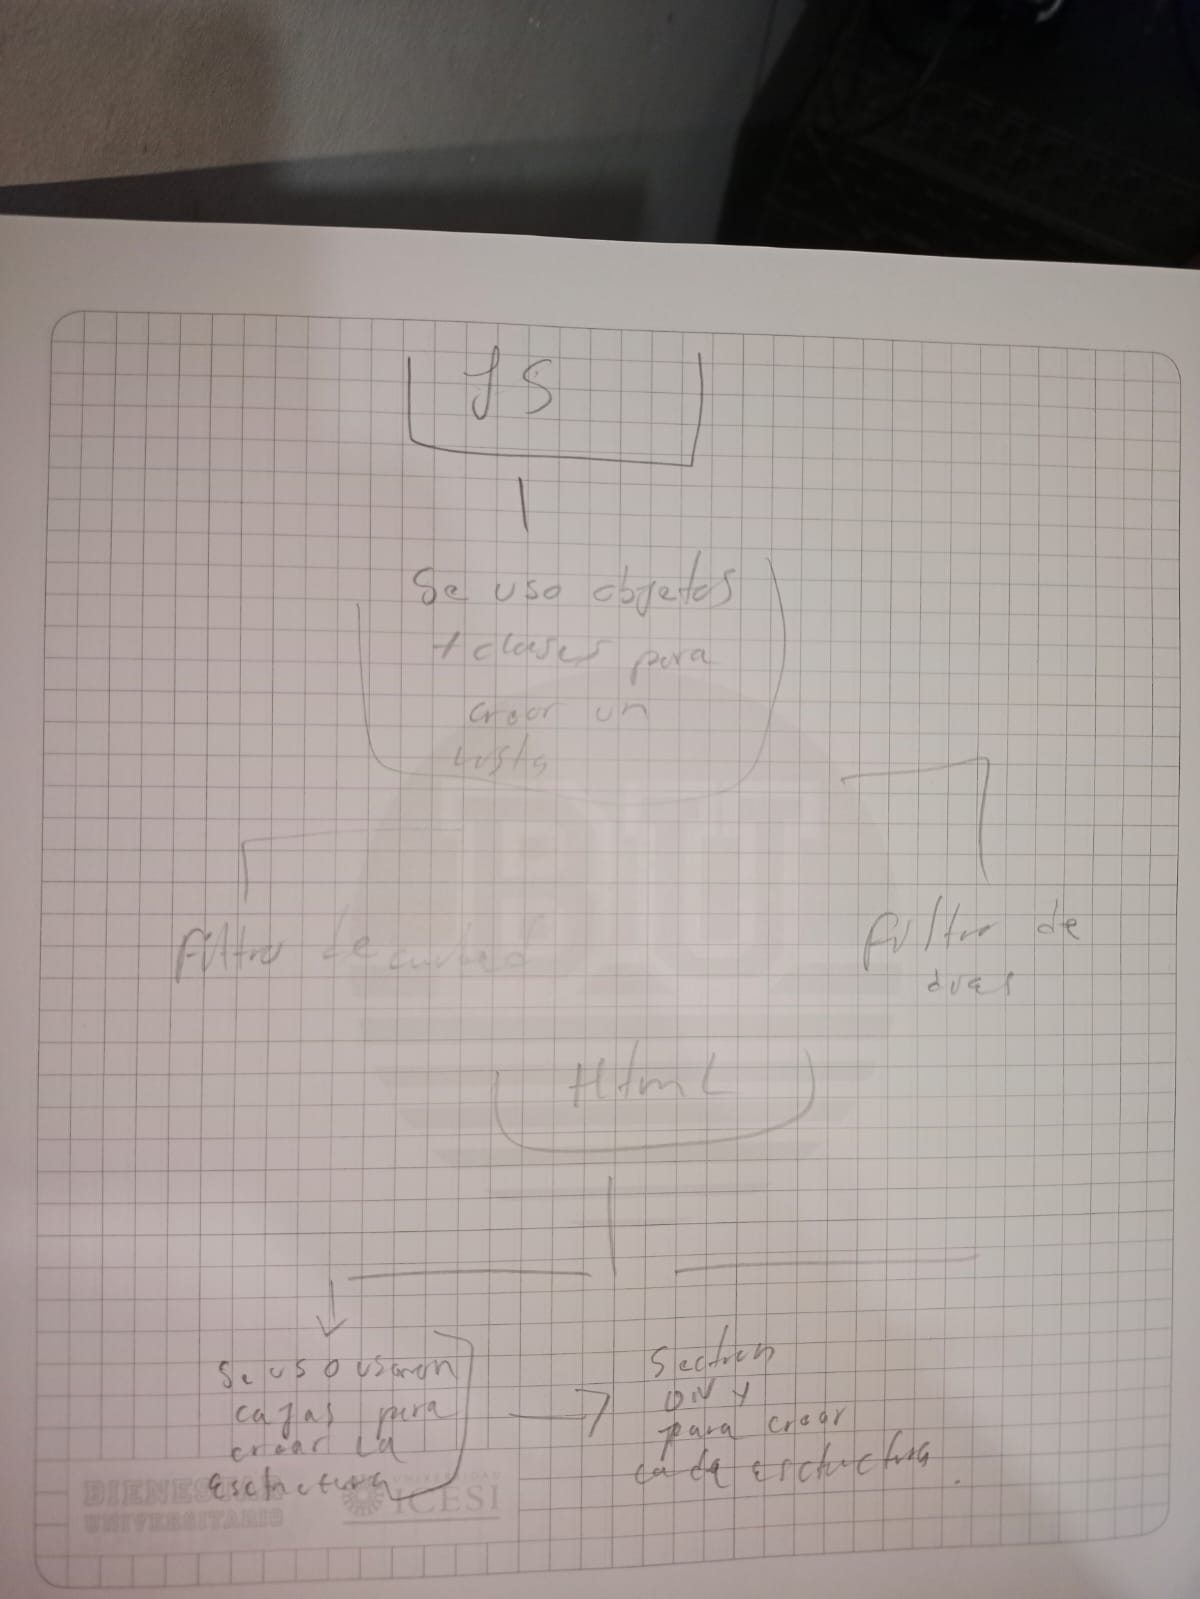 JS
Se uso objetos
+ clases para
crear un
lista
Filtro de
Filtro de
BIU
Html
Se uso usaron
cajas para
crear la
esctuctura
Section
DIV y
para crear
cada esctuctura.
BIENESTAR
UNIVERSITARIO
UNIVERSIDAD
ICESI